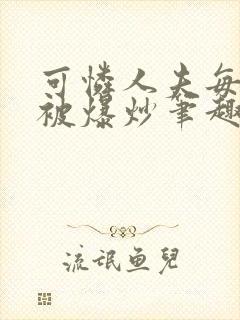 可憐人夫每
被爆炒筆趣
流氓鱼兒